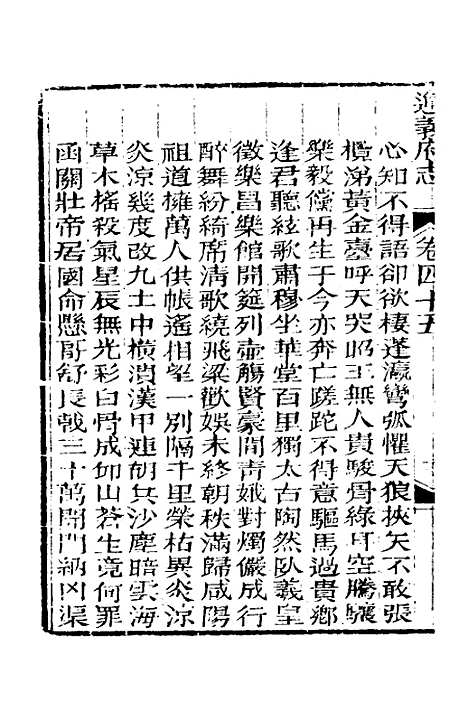 遵義府志
卷四十五
心知不得語卻欲棲蓬瀛彎弧懼天狼挾矢不敢張
攬涕黃金臺呼天哭昭王無人貴駿骨綠耳空騰驤
樂毅儻再生于今亦奔亡蹉跎不得意驅馬過貴鄉
逢君聽絃歌肅穆坐華堂百里獨太古陶然臥羲皇
徵樂昌樂館開筵列壺觴賢豪間青娥對燭儼成行
醉舞紛綺席清歌繞飛梁歡娛未終朝秩滿歸咸陽
祖道擁萬人供帳遙相望一別隔千里榮枯異炎涼
炎涼幾度改九土中橫潰漢甲連胡兵沙塵暗雲海
草木搖殺氣星辰無光彩白骨成邱山蒼生竟何罪
函關壯帝居國命懸哥舒長戟三十萬開門納凶渠